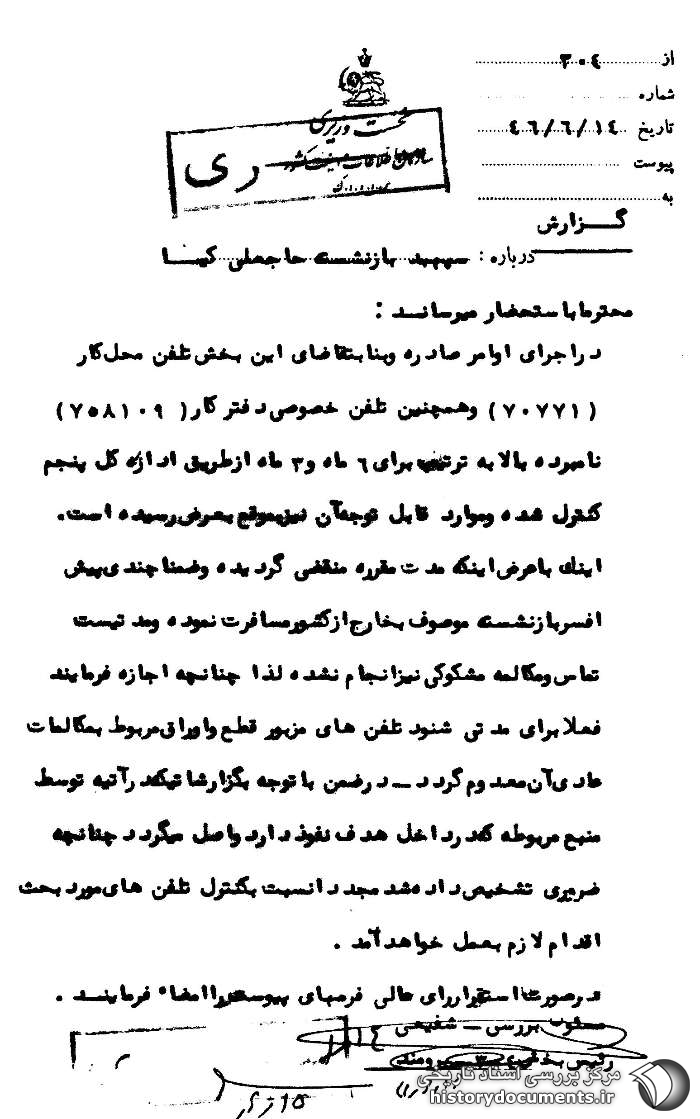 از ۳۰۴
شماره
تاریخ ۴۶/۶/۱۴
پیوست
به
نخست وزیری
سازمان اطلاعات و امنیت کشور
س.ا.و.ا.ک
ری
گزارش
درباره : سپهبد بازنشسته حاجعلی کیا
محترما باستحضار میرساند :
در اجرای اوامر صادره وبنابتقاضای این بخش تلفن محل کار
(۷۰۷۷۱) وهمچنین تلفن خصوصی دفتر کار( ۷۵۸۱۰۹)
نامبرده بالا به ترتیب برای ۶ ماه و۳ ماه ازطریق اداره کل پنجم
کنترل شده وموارد قابل توجه آن نیز بموقع بعرض رسیده است.
اینك باعرض اینکه مدت مقرره منقضی گردیده وضمنا چندی پیش
افسر بازنشسته موصوف بخارج ازکشور مسافرت نموده ومدتیست
تماس ومکالمه مشکوکی نیزانجام نشده لذا چنانچه اجازه فرمایند
فعلا برای مدتی شنود تلفن های مزبور قطع واوراق مربوط بمکالمات
عادی آن معدوم گردد ــ درضمن باتوجه بگزارشاتیکه درآتیه توسط
منبع مربوطه که در داخل هدف نفوذ دارد واصل میگردد چنانچه
ضروری تشخیص داده شد مجددا نسبت بکنترل تلفن های مورد بحث
اقدام لازم بعمل خواهد آمد .
درصورت استقرار رای عالی فرمهای پیوست را امضاء فرمایند .
مسئول بررسی ــ شفیعی
رئیس بخش
مرکز بررسی اسناد تاریخی
historydocuments.ir